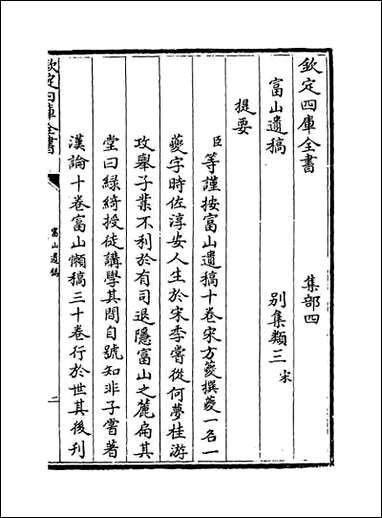 欽定四庫全書　集部四
富山遺稿　別集類三宋
提要
臣等謹按富山遺稿十卷宋方夔撰夔一名一
夔字時佐淳安人生於宋季嘗從何夢桂游
攻舉子業不利於有司退隱富山之麓扁其
堂曰綠綺授徒講學其間自號知非子嘗著
漢論十卷富山懶稿三十卷行於世其後刊
欽定四庫全書
富山遺稿
一